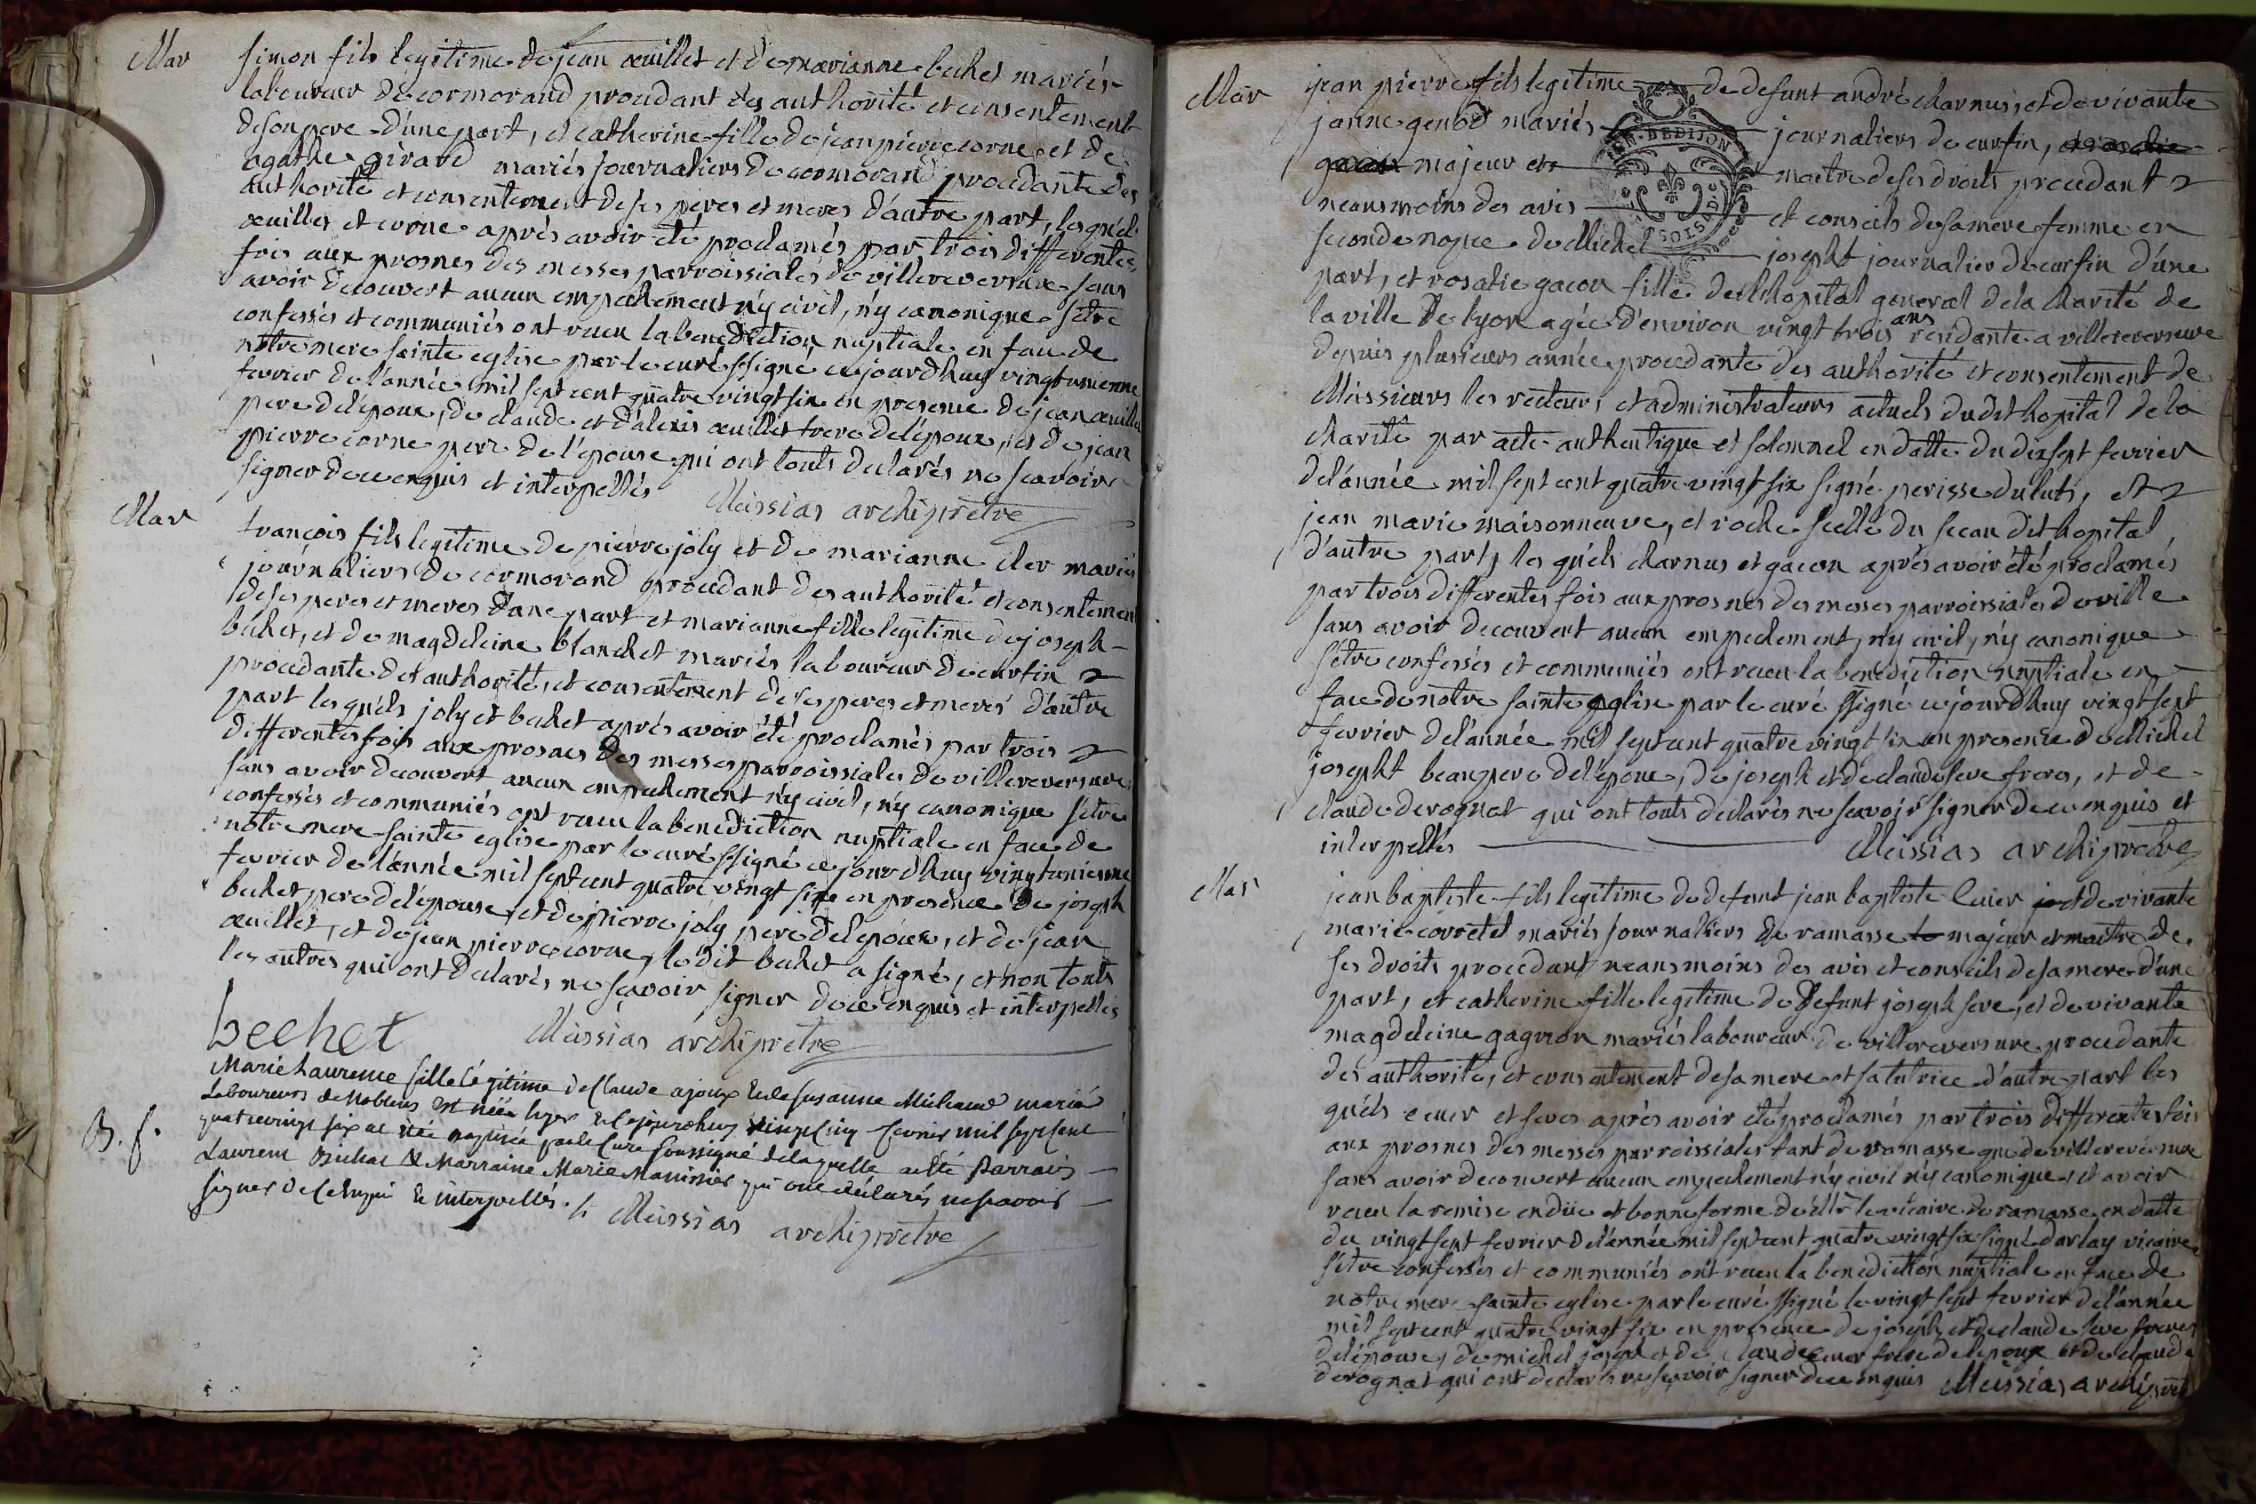 Mar
simon fils legitime de jean œuillet et de marianne bechet mariés
laboureur de cormorand procedant des authorité et consentement
de son pere d'une part, et catherine fille de jean pierre corne et de
agathe girard mariés journaliers de cormorand procedante des
authorité et consentement de ses peres et meres d'autre part, les quels
œuillet et corne aprés avoir été proclamés par trois differentes
fois aux prosnes des messes parroissiales de villereversure sans
avoir decouvert aucun empechement n'y civil, n'y canonique s'etre
confessés et communiés ont recu la benediction nuptiale en face de
notre mere sainte eglise par le curé ssigné cejourdhuy vingtunieme
fevrier de l'année mil sept cent quatre vingt six en presence de jean œuillet
pere de l'epoux, de claude et d'alexis œuillet frere de l'époux, et de jean
pierre corne pere de l'épouse qui ont touts declarés ne scavoir
signer de ce enquis et interpellés Messias archiprêtre
Mar
françois fils legitime de pierre joly et de marianne cler mariés
journaliers de cormorand procedant des authorité et consentement
de ses peres et meres d'une part et marianne fille legitime de joseph
bechet, et de magdeleine blanchet mariés laboureur de curfin
procedante des authorité, et consentement de ses peres et meres d'autre
part les quels joly et bechet aprés avoir été proclamés par trois
differentes fois aux prosnes des messes parroissiales de villereversure
sans avoir decouvert aucun empechement n'y civil, n'y canonique s'etre
confessés et communiés ont recu la benediction nuptiale en face de
notre mere sainte eglise par le curé ssigné cejourdhuy vingtunieme
fevrier de l'année mil sept cent quatre vingt six en presence de joseph
bechet pere de l'épouse, et de pierre joly pere de l'epoux, et de jean
œuillet, et de jean pierre corne, le dit bechet a signé, et non touts
les autres qui ont declarés ne scavoir signer de ce enquis et interpellés
bechet Messias archiprêtre
B. f.
Marie Laurence fille légitime de Claude ajoux et de Susanne Michaud mariés
Laboureurs de Noblens est née hyer et cejourdhuy vingt cinq fevrier mil sept cent
quatrevingt six a été baptisée par le Curé soussigné de laquelle a été Parrain
Laurent Bichat & Marraine Marie Manissier qui ont déclarés ne scavoir
signer de ce enquis & interpellés. Messias archiprêtre
Mar
jean pierre fils legitime de defunt andré charnus, et de vivante
janne genod mariés journaliers de curfin, et rosalie
gacon majeur et maitre de ses droits procedant
neansmoins des avis et conseils de sa mere femme en
seconde noçe de Michel josepht journalier de curfin d'une
part, et rosalie gacon fille de l'hopital general de la charité de
la ville de lyon agée d'environ vingt trois ans residante a villereversure
depuis plusieurs année procedante des authorité et consentement de
Messieurs les recteurs, et administrateurs actuels du dit hopital de la
charité par acte authentique et solemnel en datte du dixsept fevrier
de l'année mil sept cent quatre vingt six signé perisse duluts, et
jean marie maisonneuve, et roche scellé du sceau dit hopital
d'autre part, les quels charnus et gacon aprés avoir été proclamés
par trois differentes fois aux prosnes des messes parroissiales de ville
sans avoir decouvert aucun empechement, n'y civil, n'y canonique
s'etre confessés et communiés ont recu la benediction nuptiale en
face de notre sainte eglise par le curé ssigné cejourdhuy vingt sept
fevrier de l'année mil sept cent quatre vingt six en presence de Michel
josepht beaupere de l'epoux, de joseph et de claude seve freres, et de
claude derognat qui ont touts declarés ne scavoir signer de ce enquis et
interpellés Messias archiprêtre
Mar
jean baptiste fils legitime de defunt jean baptiste cuer et de vivante
marie corretel mariés journaliers de ramasse majeur et maitre de
ses droits procedant neansmoins des avis et conseils de sa mere d'une
part, et catherine fille legitime de defunt joseph seve, et de vivante
magdeleine gagnon mariés laboureur de villereversure procedante
des authorité, et consentement de sa mere et sa tutrice d'autre part les
quels cuer et seve aprés avoir été proclamés par trois differentes fois
aux prosnes des messes parroissiales tant de ramasse que de villereversure
sans avoir decouvert aucun empechement n'y civil n'y canonique, et avoir
recu la remise en düe et bonne forme de Mr le vicaire de ramasse en datte
du vingt sept fevrier de l'année mil sept cent quatre vingt six signé darlay vicaire
s'etre confessés et communiés ont recu la benediction nuptiale en face de
notre mere sainte eglise par le curé ssigné le vingt sept fevrier de l'année
mil sept cent quatre vingt six en presence de joseph et de claude seve freres
de l'épouse, de michel joseph et de claude cuer frere de l'epoux et de claude
derognat qui ont declarés ne scavoir signer de ce enquis Messias archiprêt